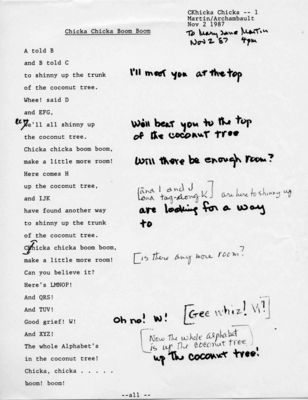 CKhicka Chicka -- 1
Martin/Archambault
Nov 2 1987
To Mary Jane Martin
Nov 2 87 4pm
Chicka Chicka Boom Boom
A told B
and B told C
to shinny up the trunk I'll meet you at the top
of the coconut tree.
Whee! said D
and EFG,
we'll all shinny up We'll beat you to the top
the coconut tree. of the coconut tree
Chicka chicka boom boom,
make a little more room! Will there be enough room?
Here comes H
up the coconut tree, [and I and J
and IJK and tag-along K] are here to shinny up
have found another way are looking for a way
to shinny up the trunk to
of the coconut tree.
Chicka chicka boom boom,
make a little more room! [is there any more room?
Can you believe it?
Here's LMNOP!
And QRS!
And TUV!
Good grief! W! Oh no! W! [Gee whiz! W!]
And XYZ!
The whole Alphabet's [Now the whole alphabet
in the coconut tree! is up the coconut tree
Chicka, chicka . . . . . up the coconut tree!
boom! boom!
--all --